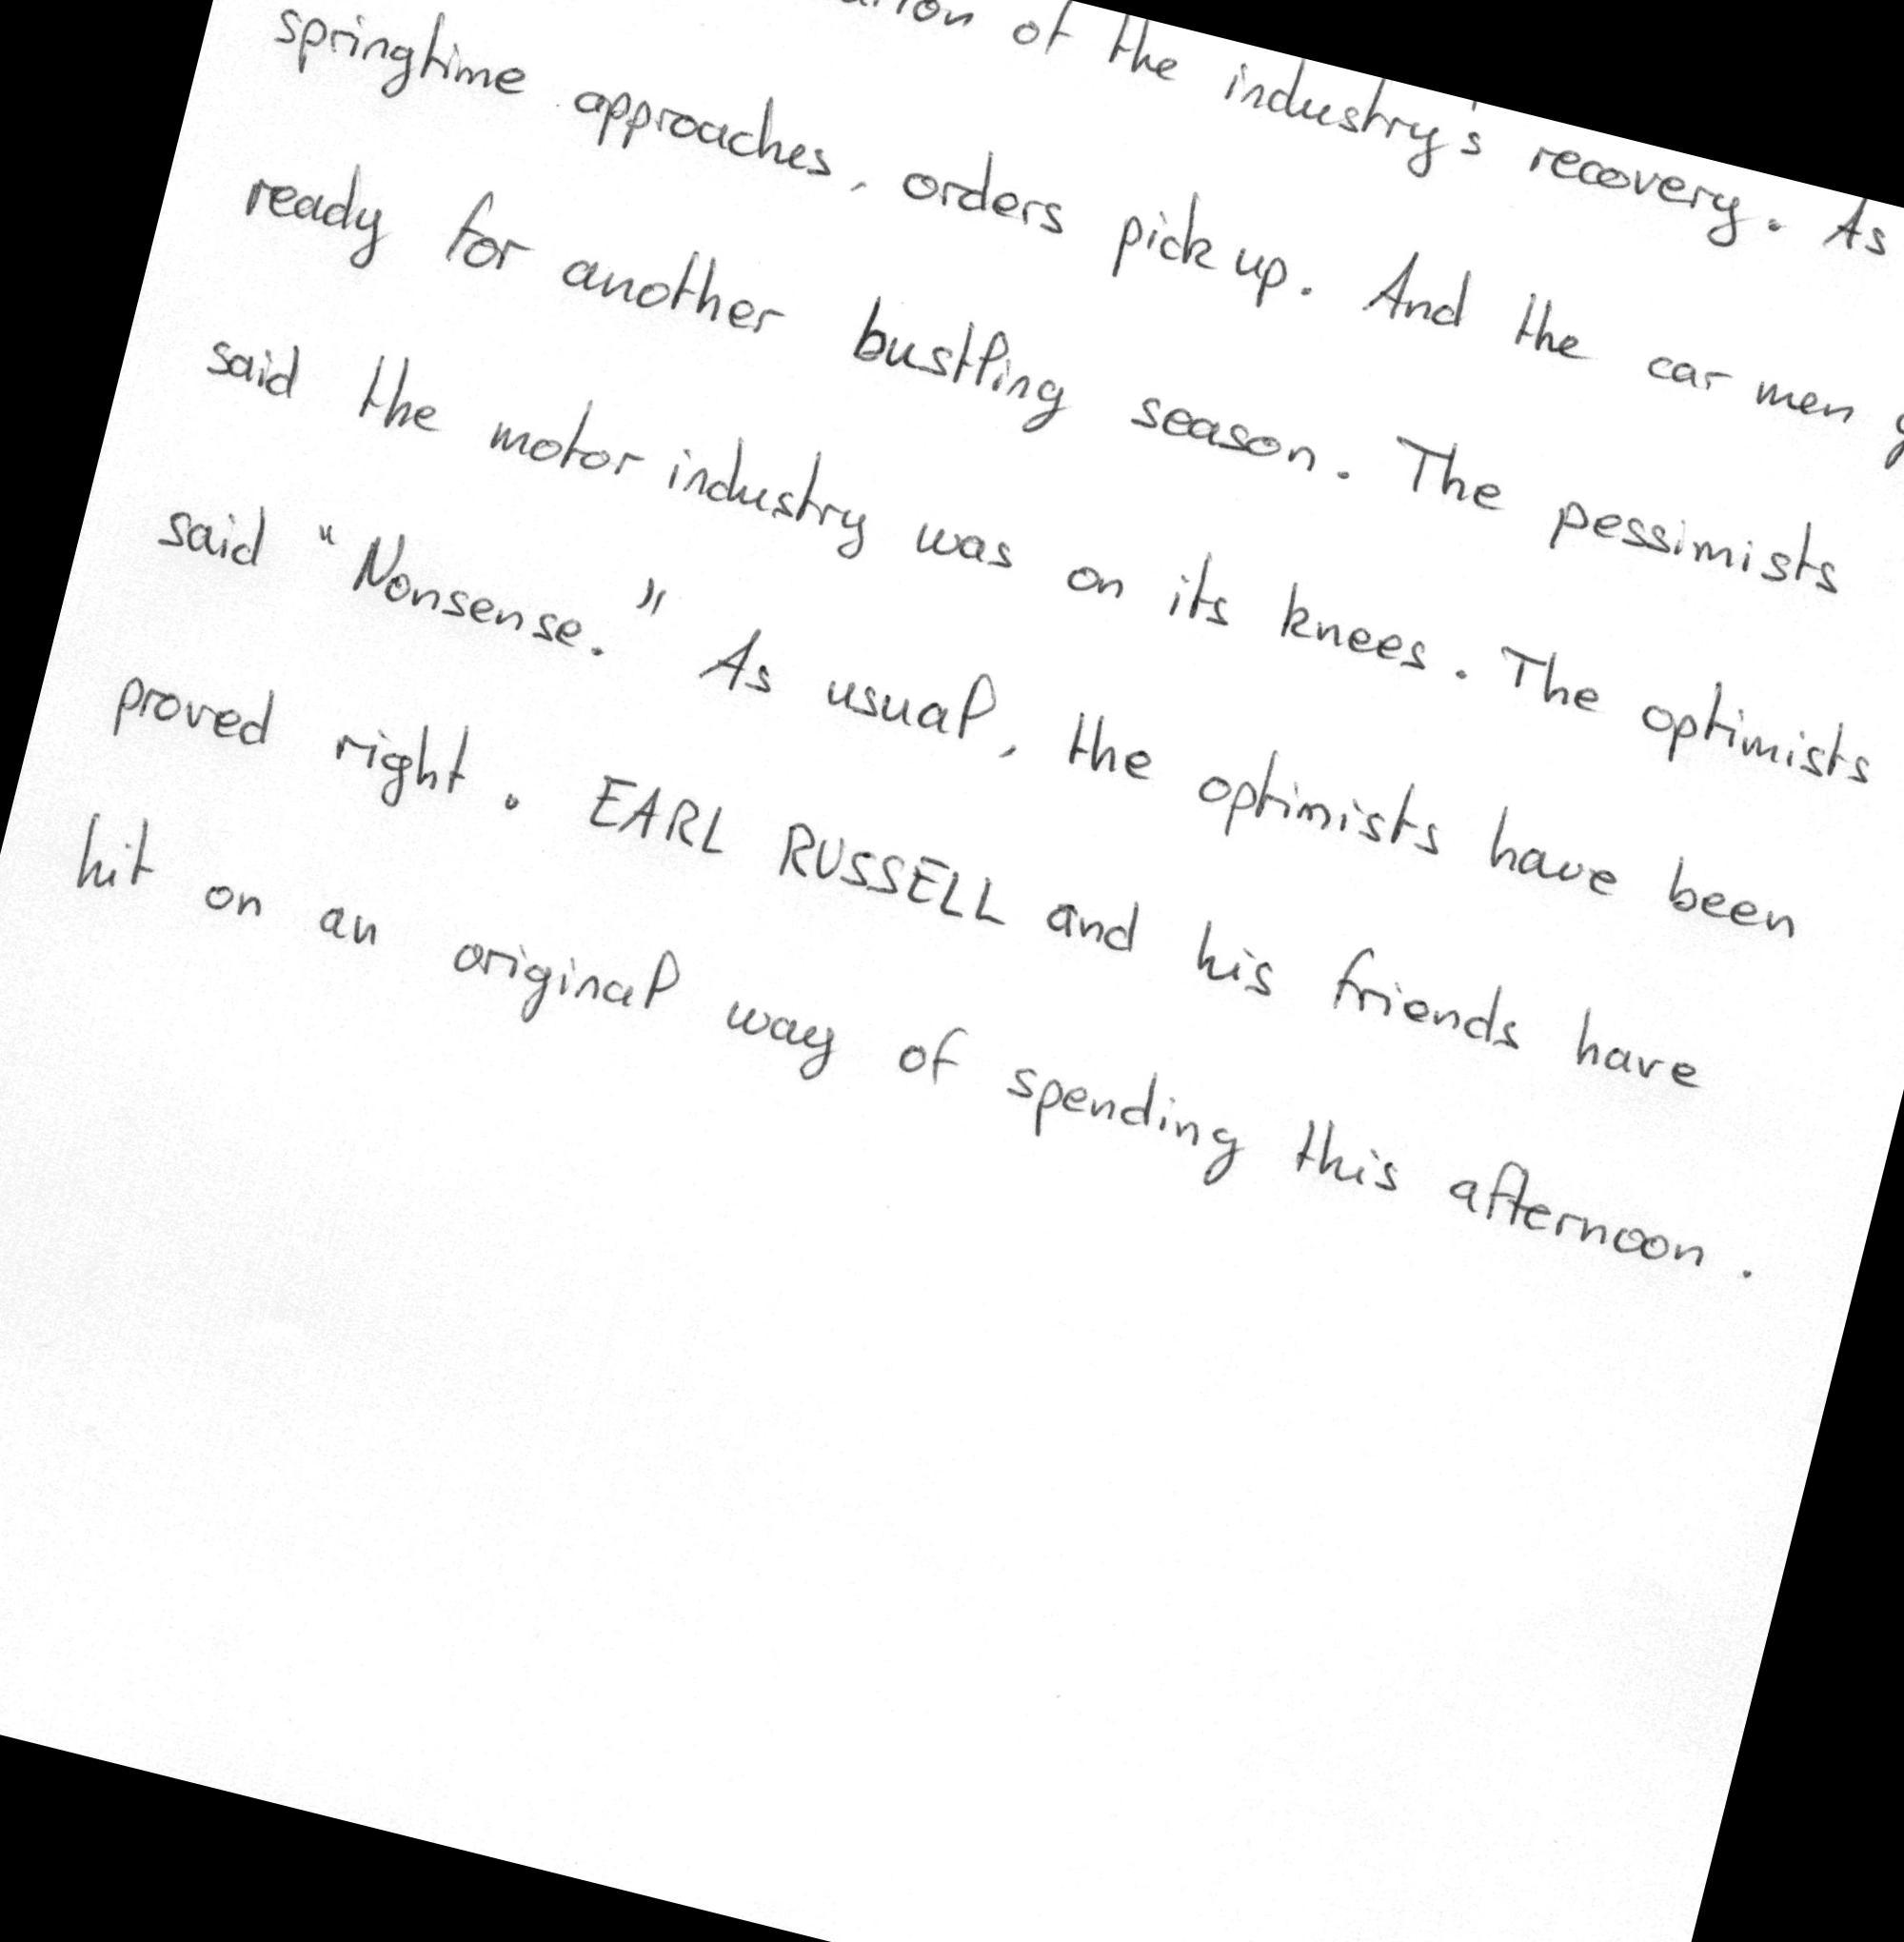 of the industry's recovery. As
springtime approaches, orders pick up. And the car men
ready for another bustling season. The pessimists
said the motor industry was on its knees. The optimists
said "Nonsense." As usual, the optimists have been
proved right. EARL RUSSELL and his friends have
hit on an original way of spending this afternoon.